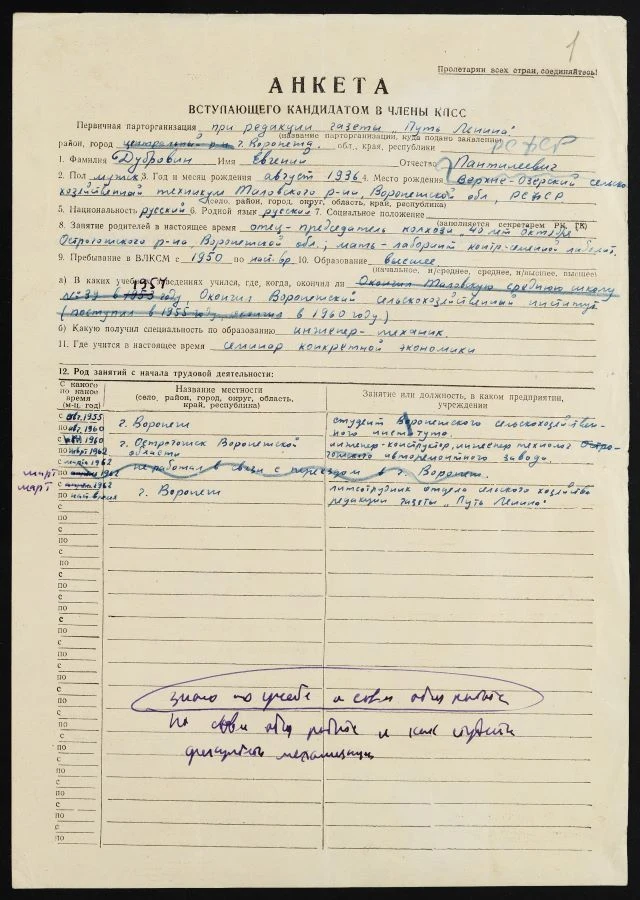 1
Пролетарии всех стран, соединяйтесь!
АНКЕТА
ВСТУПАЮЩЕГО КАНДИДАТОМ В ЧЛЕНЫ КПСС
Первичная парторганизация при редакции газеты „Путь Ленина“.
(название парторганизации, куда подано заявление)
РСФСР
район, город центральный р-н г. Воронежа, обл., края, республики
1. Фамилия Дубровин Имя Евгений Отчество Пантелеевич
2. Пол мужск 3. Год и месяц рождения август 1936 4. Место рождения Верхне-Озерский сельско-
хозяйственный техникум Таловского р-на, Воронежской обл., РСФСР
(село, район, город, округ, область, край, республика)
5. Национальность русский 6. Родной язык русский 7. Социальное положение
(заполняется секретарем РК, ГК)
8. Занятие родителей в настоящее время отец - председатель колхоза „40 лет Октября“
Острогожского р-на, Воронежской обл.; мать - лаборант контр.-семенной лаборат.
9. Пребывание в ВЛКСМ с 1950 по наст. вр. 10. Образование высшее
(начальное, н/среднее, среднее, н/высшее, высшее)
1954
а) В каких учебных заведениях учился, где, когда, окончил ли Окончил Таловскую среднюю школу
№ 39 в 1955 году. Окончил Воронежский сельскохозяйственный институт
(поступил в 1955 году, окончил в 1960 году.)
б) Какую получил специальность по образованию инженер-механик.
11. Где учится в настоящее время семинар конкретной экономики
12. Род занятий с начала трудовой деятельности:
С какого по какое время (м-ц, год)
Название местности (село, район, город, округ, область, край, республика)
Занятие или должность, в каком предприятии, учреждении
с авг. 1955 г. Воронеж студент Воронежского сельскохозяйствен-
по авг. 1960 ного института.
с авг. 1960 г. Острогожск Воронежской инженер-конструктор, инженер технолог Остро-
по март 1962 области гожского авторемонтного завода.
с марта 1962 не работал в связи с переездом в г. Воронеж.
март по 1962
март с 1962 г. Воронеж литсотрудник отдела сельского хозяйства
по наст. время редакции газеты „Путь Ленина“
с
по
с
по
с
по
с
по
с
по
с
по
с
по
с
по
с
по
с
по
знаю по учебе и
по и как
механизации